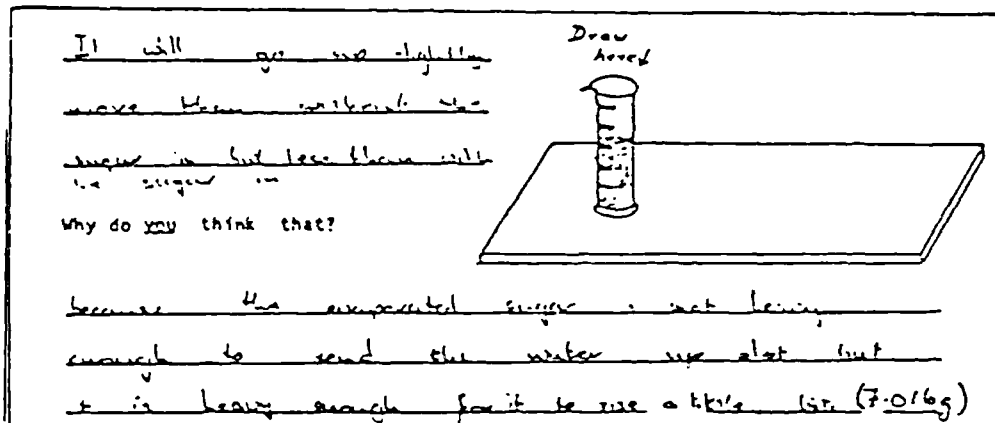 It will go up slightly
Draw
here
more than without the
sugar in but less than with
the sugar in
Why do you think that?
because the evaporated sugar is not heavy
enough to send the water up alot but
it is heavy enough for it to rise a little bit. (7.016g)